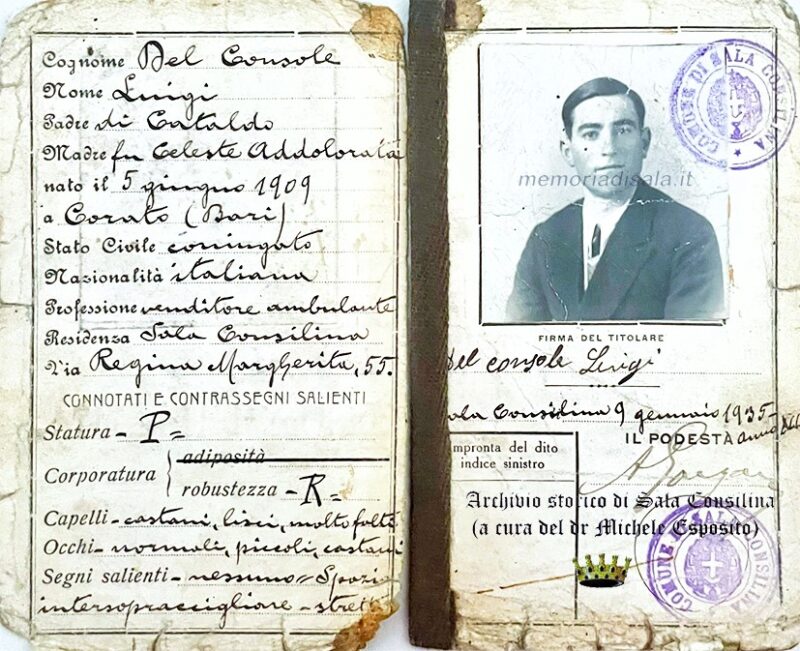 Cognome Del Console
Nome Luigi
Padre di Cataldo
Madre fu Celeste Addolorata
nato il 5 giugno 1909
a Corato (Bari)
Stato Civile coniugato
Nazionalità italiana
Professione venditore ambulante
Residenza Sala Consilina
Via Regina Margherita, 55.
CONNOTATI E CONTRASSEGNI SALIENTI
Statura - P =
Corporatura
adiposità
robustezza - R =
Capelli - castani, lisci, molto folti
Occhi - normali, piccoli, castani
Segni salienti - nessuno = Spazio
intersopraccigliare - stretto
COMUNE DI SALA CONSILINA
memoriadisala.it
FIRMA DEL TITOLARE
Del console Luigi
Sala Consilina 9 gennaio 1935 -
IL PODESTÀ anno
mpronta del dito
indice sinistro
Archivio storico di Sala Consilina
(a cura del dr Michele Esposito)
COMUNE DI SALA CONSILINA